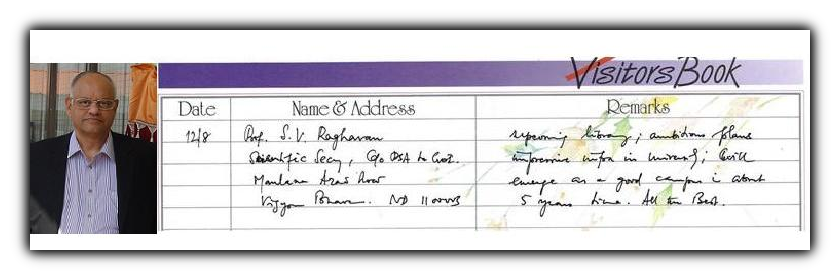 Visitors Book
Date Name & Address Remarks
12/8 Prof. S. V. Raghavan upcoming library; ambitious plans
Scientific Secy, C/o PSA to Govt. impressive infra in university; will
Maulana Azad Road emerge as a good campus in about
Vigyan Bhavan. ND 110003 5 years time. All the Best.